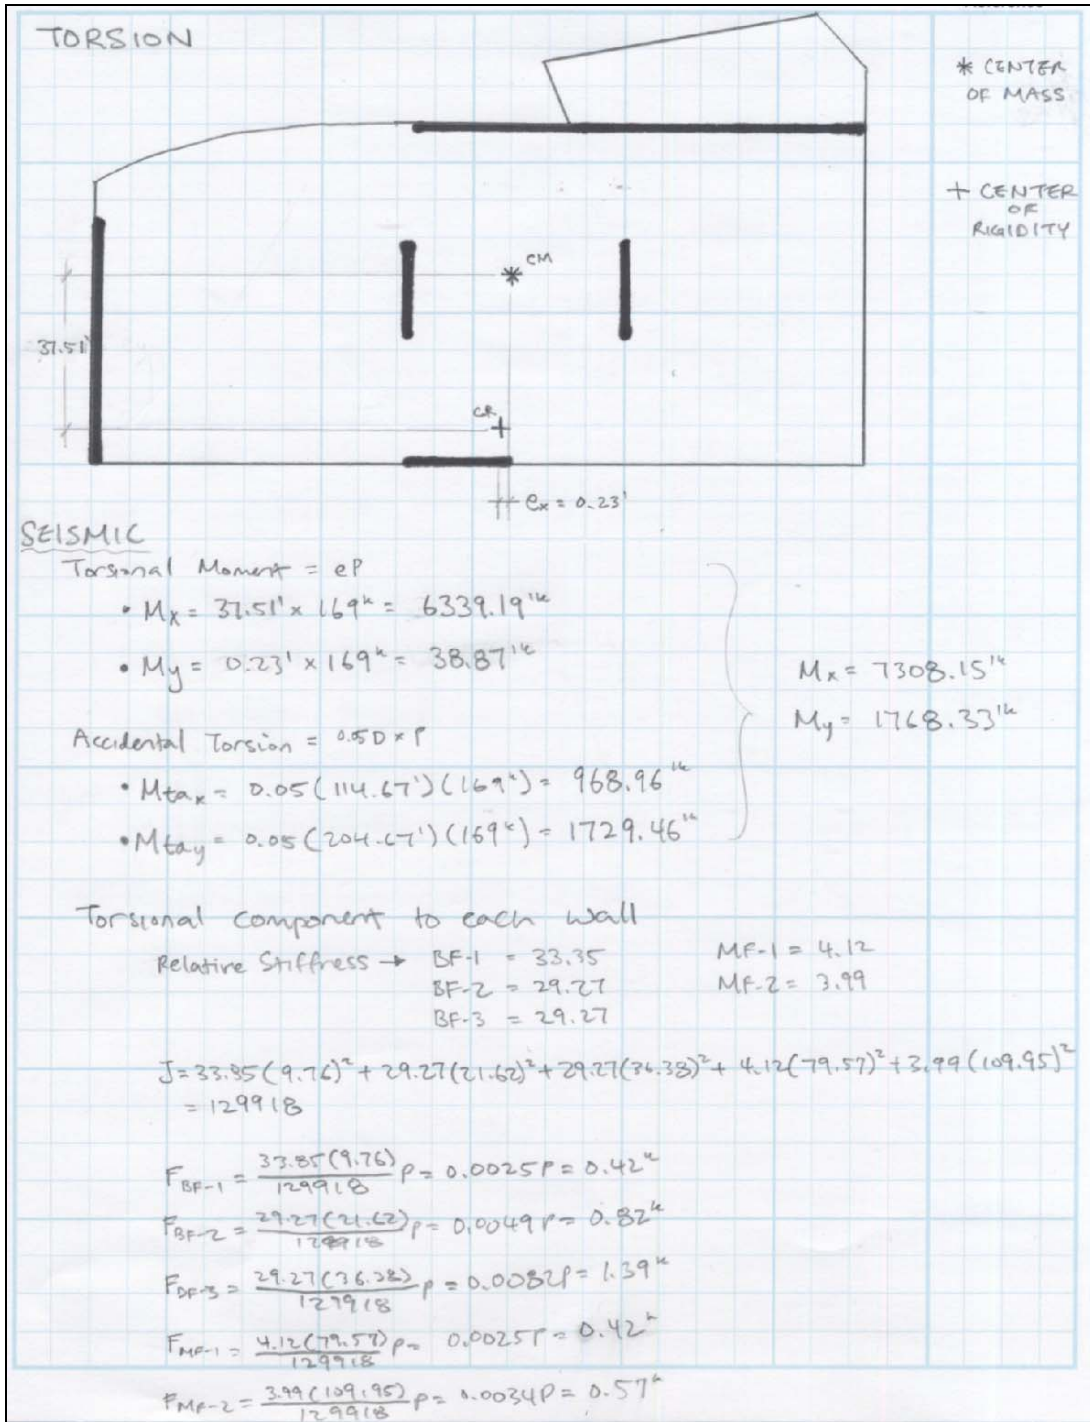 TORSION
* CENTER
OF MASS
+ CENTER
OF
RIGIDITY
CM
37.51'
CR
ex = 0.23'
SEISMIC
Torsional Moment = eP
• Mx = 37.51' x 169k = 6339.19'k
• My = 0.23' x 169k = 38.87'k
Mx = 7308.15'k
My = 1768.33'k
Accidental Torsion = 0.05D x P
• Mtax = 0.05(114.67')(169k) = 968.96'k
• Mtay = 0.05(204.67')(169k) = 1729.46'k
Torsional component to each wall
Relative Stiffness → BF-1 = 33.35 MF-1 = 4.12
BF-2 = 29.27 MF-2 = 3.99
BF-3 = 29.27
J = 33.85(9.76)² + 29.27(21.62)² + 29.27(36.38)² + 4.12(79.57)² + 3.99(109.95)²
= 129918
FBF-1 = 33.85(9.76)/129918 P = 0.0025P = 0.42k
FBF-2 = 29.27(21.62)/129918 P = 0.0049P = 0.82k
FBF-3 = 29.27(36.38)/129918 P = 0.0082P = 1.39k
FMF-1 = 4.12(79.57)/129918 P = 0.0025P = 0.42k
FMF-2 = 3.99(109.95)/129918 P = 0.0034P = 0.57k